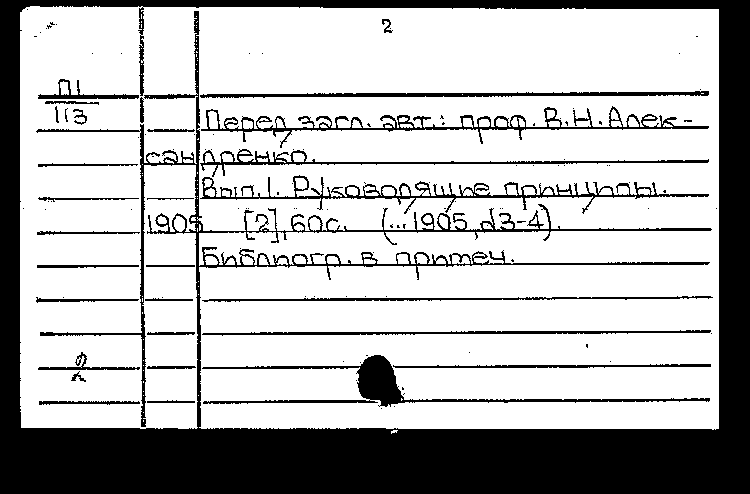 2
П1
113
Перед загл. авт.: проф. В.Н. Алек-
сандренко.
Вып.1. Руководящие принципы.
1905. [2],60с. (...1905,№3-4).
Библиогр. в примеч.